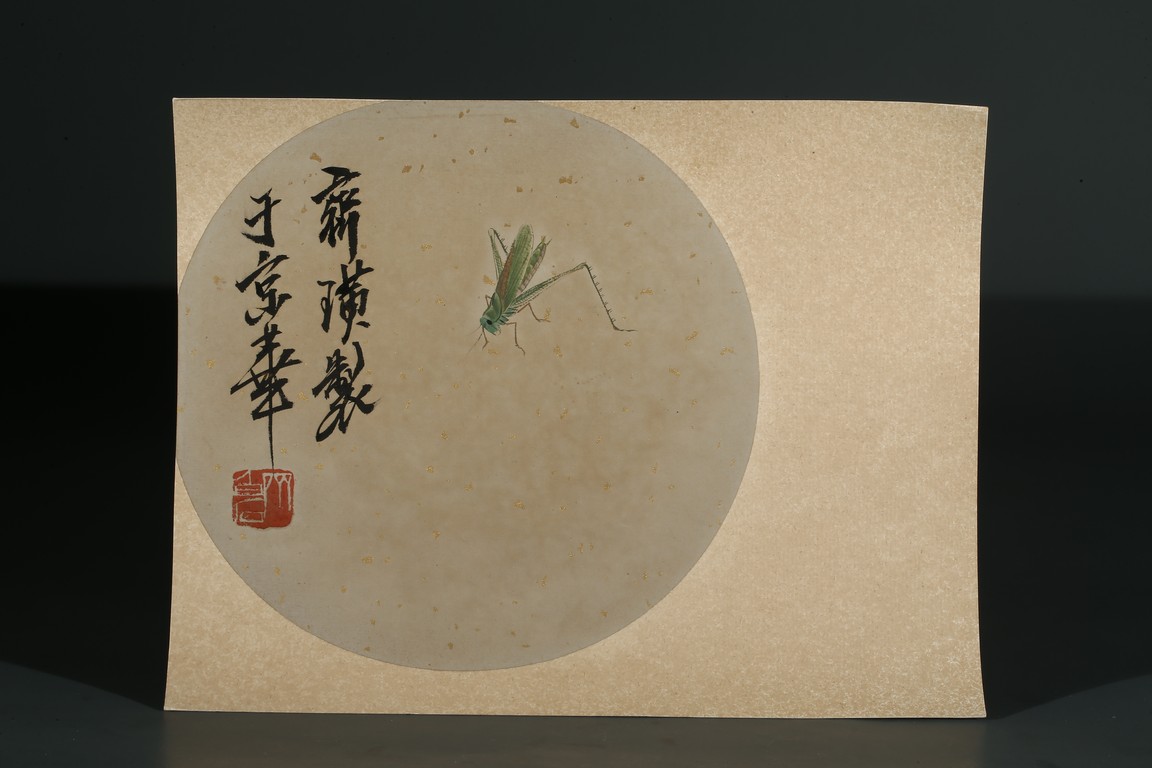 齊璜製
于京華